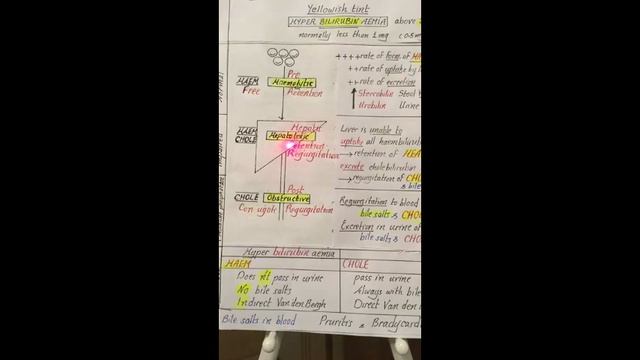 Yellowish tint
HYPER BILIRUBIN AEMIA above
normally less than 1 mg
++++rate of form. of
++rate of uptake by
++rate of excretion
Stercobilin Stool
Urobilin Urine
Pre
HAEM Haemolytic
Free Retention
Liver is unable to
uptake all haembilirubin
→ retention of
excrete cholebilirubin
→ regurgitation of
& bile
Hepatic
HAEM
CHOLE
Retention
Regurgitation
Post
CHOLE Obstructive
Conjugate Regurgitation
Regurgitation to blood
bile salts &
Excretion in urine of
bile salts &
Hyper bilirubin aemia
HAEM CHOLE
Does n't pass in urine pass in urine
No bile salts Always with bile
Indirect Van den Bergh Direct Van den
Bile salts in blood Pruritis & Bradycard